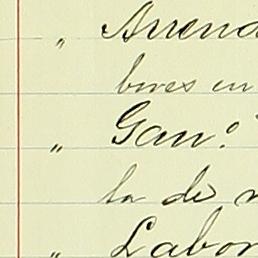 " Arrend
bores en
" Gan.º
la de
" Labor